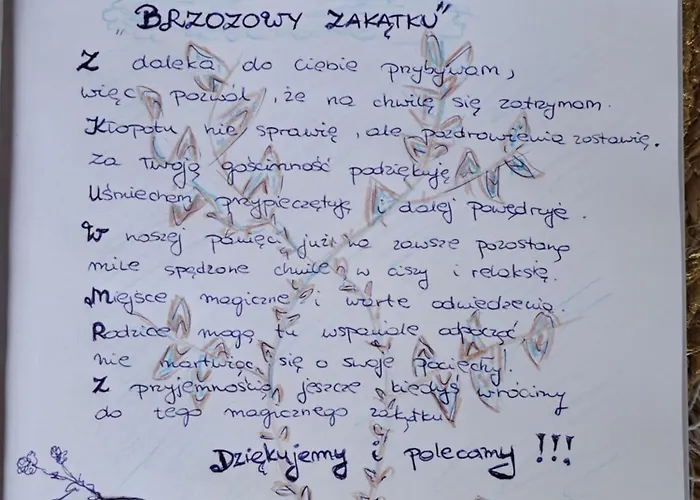 "BRZOZOWY ZAKĄTKU"
Z daleka do ciebie przybywam,
więc pozwól, że na chwilę się zatrzymam.
Kłopotu nie sprawię, ale pozdrowienia zostawię.
Za Twoją gościnność podziękuję
Uśmiechem przypieczętuję i dalej powędruję.
W naszej pamięci już na zawsze pozostaną
mile spędzone chwile w ciszy i relaksie.
Miejsce magiczne i warte odwiedzenia.
Rodzice mogą tu wspaniale odpocząć
nie martwiąc się o swoje pociechy!
Z przyjemnością jeszcze kiedyś wrócimy
do tego magicznego zakątku.
Dziękujemy i polecamy !!!